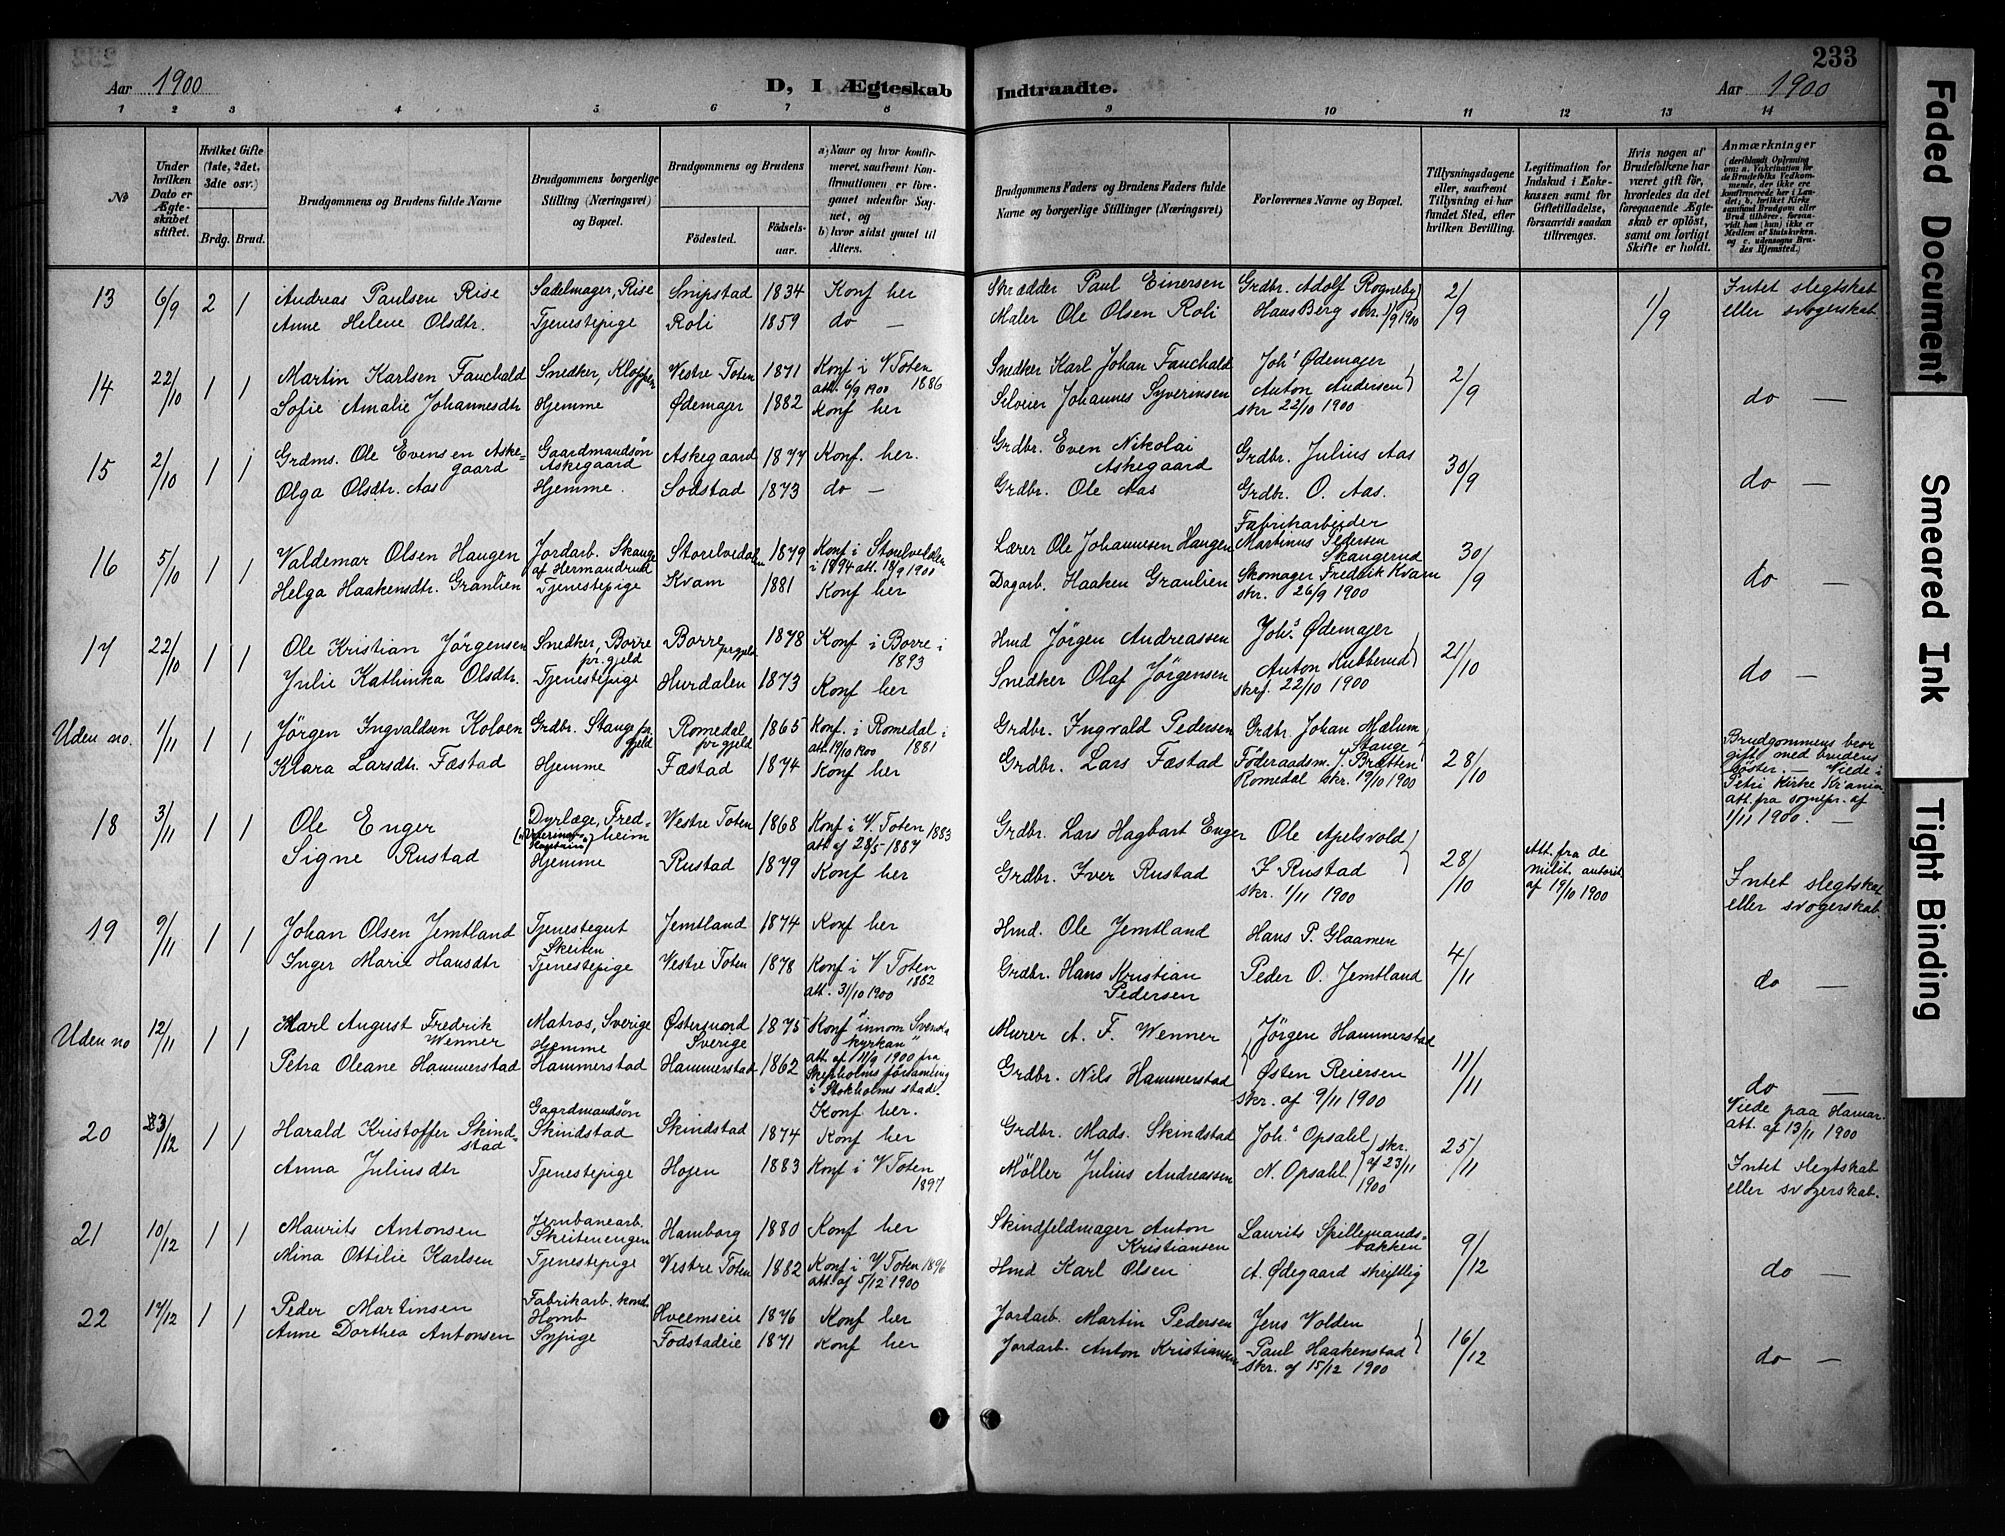 233
Aar 1900 D, I Ægteskab Indtraadte. Aar 1900
1 2 3 4 5 6 7 8 9 10 11 12 13 14
№
Under hvilken Dato er Ægteskabet stiftet.
Hvilket Gifte (1ste, 2det, 3die osv.)
Brdg. Brud.
Brudgommens og Brudens fulde Navne
Brudgommens borgerlige Stilling (Næringsvei) og Bopæl.
Brudgommens og Brudens
Fødested. Fødselsaar.
a) Naar og hvor konfirmeret, saafremt Konfirmationen er foregaaet udenfor Sognet, og
b) hvor sidst gaaet til Alters.
Brudgommens Faders og Brudens Faders fulde Navne og borgerlige Stillinger (Næringsvei)
Forlovernes Navne og Bopæl.
Tillysningsdagene eller, saafremt Tillysning ei har fundet Sted, efter hvilken Bevilling.
Legitimation for Indskud i Enkekassen samt for Giftetilladelse, forsaavidt saadan tiltrænges.
Hvis nogen af Brudefolkene har været gift før, hvorledes da det foregaaende Ægteskab er opløst, samt om lovligt Skifte er holdt.
Anmærkninger
(deriblandt Oplysning om: a. Vakcination for de Brudefolks Vedkommende, der ikke ere konfirmerede her i Landet; b. hvilket Kirkesamfund Brudgom eller Brud tilhører, forsaavidt han (hun) ikke er Medlem af Statskirken, og c. udensogns Brudes Hjemsted.)
13 6/9 2 1 Andreas Paulsen Rise Sadelmager, Rise Snipstad 1834 Konf her Skrædder Paul Einersen Grdbr. Adolf Rogneby 2/9 1/9 Intet slegtskab
Anne Helene Olsdtr. Tjenestepige Roli 1859 do — Maler Ole Olsen Roli Hans Berg skr. 1/9 1900 eller svogerskab.
14 22/10 1 1 Martin Karlsen Fauchald Snedker, Kloppen Vestre Toten 1871 Konf i V Toten 1886 Snedker Karl Johan Fauchald Johs Ødemajer 2/9
att. 6/9 1900 Anton Andersen
Sofie Amalie Johannesdtr Hjemme Ødemajer 1882 Konf her Selveier Johannes Syverinsen skr 22/10 1900 do —
15 2/10 1 1 Grdms. Ole Evensen Askegaard Gaardmandsøn Askegaard Askegaard 1877 Konf. her. Grdbr. Even Nikolai Askegaard Grdbr. Julius Aas 30/9
Olga Olsdtr. Aas Hjemme. Sodstad 1873 do — Grdbr. Ole Aas Grdbr. O. Aas. do —
16 5/10 1 1 Valdemar Olsen Haugen Jordarb. Skange af Hermandrud Storelvedalen 1879 Konf i Storelvedalen i 1894 att. 18/9 1900 Lærer Ole Johannesen Haugen Fabrikarbeider Martinus Pedersen Skangerud 30/9
Helga Haakensdtr. Granlien Tjenestepige Kvam 1881 Konf her Dagarb. Haaken Granlien Skomager Fredrik Kvam skr. 26/9 1900 do —
17 22/10 1 1 Ole Kristian Jörgensen Snedker, Borre pr.gjeld Borre prgjeld 1878 Konf i Borre i 1893 Hmd Jörgen Andreassen Johs. Ødemajer 21/10
Julie Kathinka Olsdtr. Tjenestepige Hurdalen 1873 Konf her Snedker Olaf Jörgensen Anton Kubberud skrf. 22/10 1900 do —
Uden no. 1/11 1 1 Jörgen Ingvaldsen Koloen Grdbr. Stange pr. gjeld Romedal pr gjeld 1865 Konf. i Romedal i 1881 att 19/10 1900 Grdbr. Ingvald Pedersen Grdbr. Johan Mælum Stange 28/10
Klara Larsdtr. Fæstad Hjemme Fæstad 1874 Konf her Grdbr. Lars Fæstad Föderaadsm. J. Bratten Romedal skr. 19/10 1900
Brudgommens bror gift med brudens søster. — Viede i Petri Kirke Kr.ania att. fra sognepr. af 1/11 1900. —
18 3/11 1 1 Ole Enger Dyrlæge, Fredheim Vestre Toten 1868 Konf i V. Toten 1883 att af 28/5 1887 Grdbr. Lars Hagbart Enger Ole Apelsvold 28/10 Att. fra de milit. autorit. af 19/10 1900
Signe Rustad Hjemme Rustad 1879 Konf her Grdbr. Iver Rustad I Rustad skr. 1/11 1900 Intet slegtskab eller svogerskab.
19 9/11 1 1 Johan Olsen Jemtland Tjenestegut Skeiten Jemtland 1874 Konf her Hmd. Ole Jemtland Hans P. Glaamen 4/11
Inger Marie Hansdtr Tjenestepige Vestre Toten 1878 Konf i V Toten 1882 att. 31/10 1900 Grdbr. Hans Kristian Pedersen Peder O. Jemtland do —
Uden no 12/11 1 1 Karl August Fredrik Wenner Matros, Sverige Østersund Sverige 1875 Konf "innom Svenska kyrkan" att af 11/9 1900 fra Skepsholms församling i Stokholms stad. Murer A. F. Wenner Jörgen Hammerstad 11/11
Petra Oleane Hammerstad Hjemme Hammerstad Hammerstad 1862 Konf her. Grdbr. Nils Hammerstad Østen Reiersen skr. af 9/11 1900 do —
Viede paa Hamar. att. af 13/11 1900
20 23/12 1 1 Harald Kristoffer Skindstad Gaardmandsøn Skindstad Skindstad 1874 Konf her Grdbr. Mads. Skindstad Johs Opsahl 25/11
Anna Juliusdtr Tjenestepige Hojen 1883 Konf i V Toten 1897 Möller Julius Andreassen N. Opsahl skr. af 23/11 1900 Intet slegtskab eller svogerskab.
21 10/12 1 1 Maurits Antonsen Jernbanearb. Skeitenengen Hamborg 1880 Konf her Skindfeldmager Anton Kristiansen Laurits Spillemandsbakken 9/12
Mina Ottilie Karlsen Tjenestepige Vestre Toten 1882 Konf i V Toten 1896 att af 5/12 1900 Hmd Karl Olsen A. Ødegaard skriftlig do —
22 17/12 1 1 Peder Martinsen Fabrikarb. kond. Homb Hveemseie 1876 Konf her Jordarb. Martin Pedersen Jens Volden 16/12
Anne Dorthea Antonsen Sypige Fodstadeie 1871 Konf her Jordarb. Anton Kristiansen Paul Haakenstad skr. af 15/12 1900 do —
Faded Document
Smeared Ink
Tight Binding